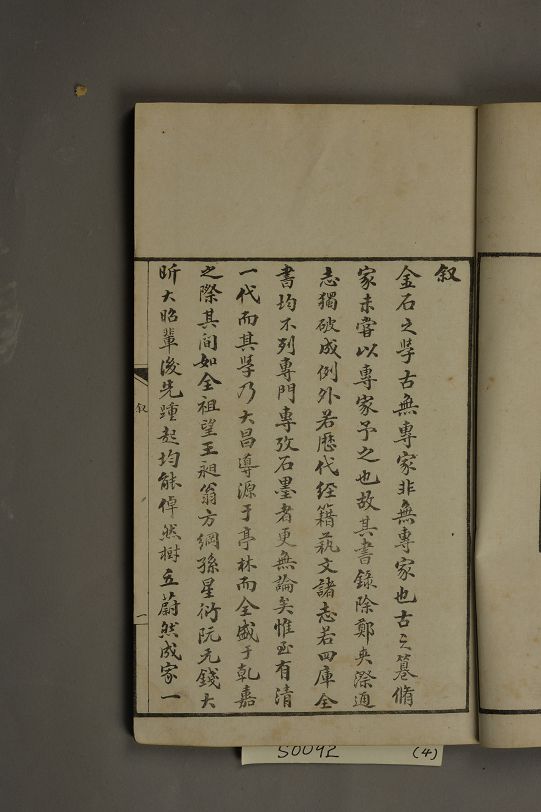 叙
金石之學古無專家非無專家也古之篹脩
家未嘗以專家予之也故其書錄除鄭夾漈通
志獨破成例外若歷代經籍藝文諸志若四庫全
書均不列專門專攷石墨者更無論矣惟至有清
一代而其學乃大昌導源于亭林而全盛于乾嘉
之際其间如全祖望王昶翁方綱孫星衍阮元錢大
昕大昭輩後先踵起均能倬然樹立蔚然成家一
叙
一
S0092
(4)